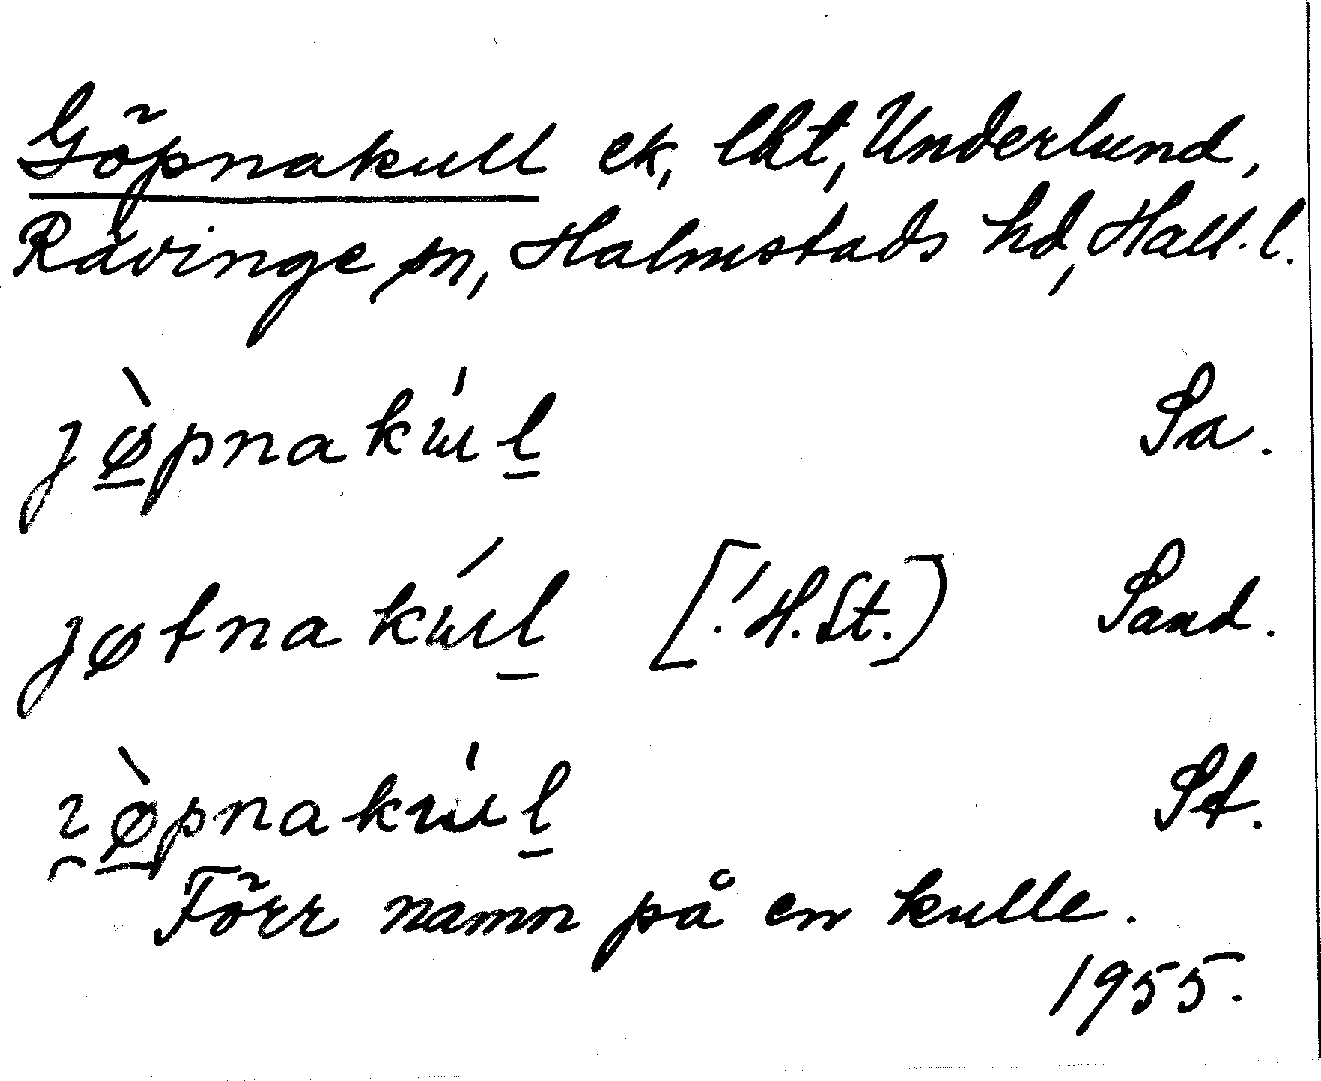 Göpnakull ek, lht, Underlund,
Rävinge sn, Halmstads hd, Hall. l.
jø̀pnakúl Sa.
jøtnakúl [! H. St.] Sand.
ı̯ø̀pnakúl St.
Förr namn på en kulle.
1955.